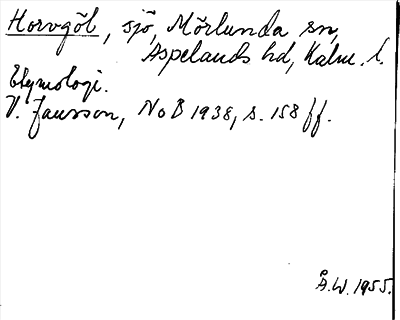 Horvgöl, sjö, Mörlunda sn,
Aspelands hd, Kalm. l.
Etymologi.
V. Jansson, NoB 1938, s. 158 ff.
Å.W. 1955.